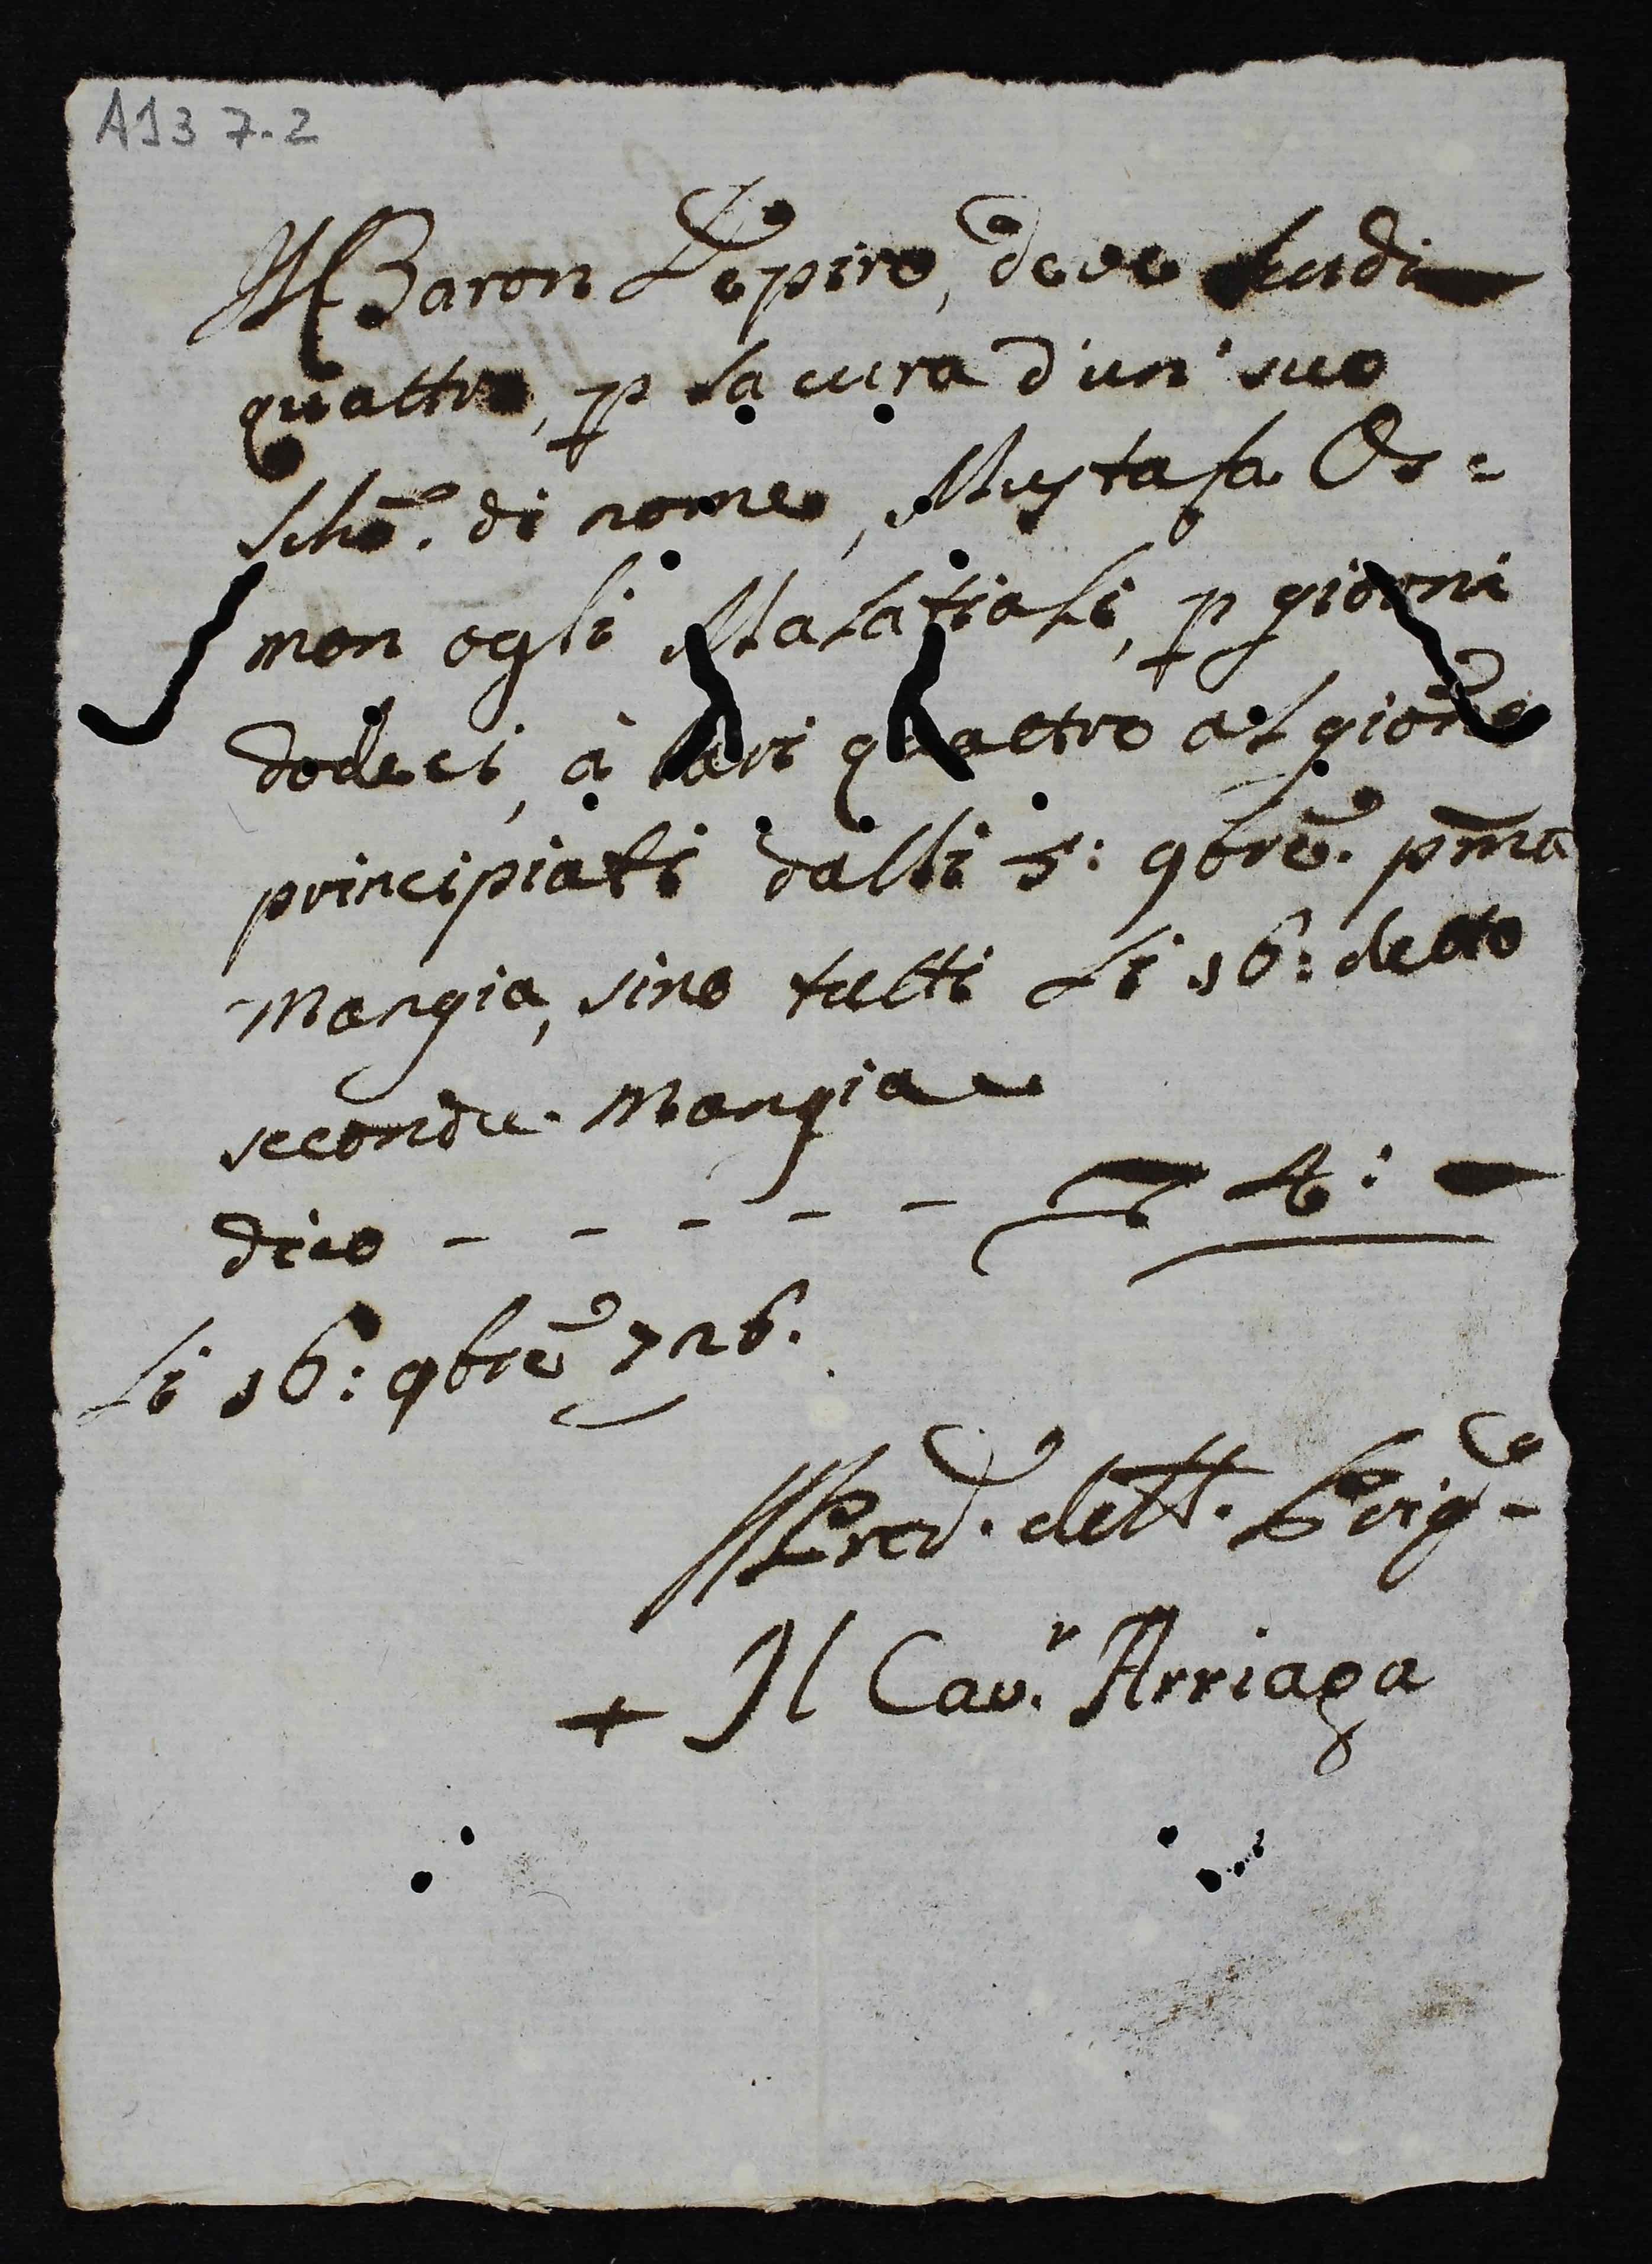 A13 7.2
Il Baron Depiro, deve scudi
quattro, p la cura d'un' suo
Schõ. di nome, Mustafa Os=
man ogli Malatiali, p giorni
dodeci, à tari quattro al giorno
principiati dalli 5: 9bre. pma
Mangia, sino tutti li 16: detto
seconda Mangia
dico - - - - - 4:
li 16: 9bre 726.
Il Cav.r Arriaga